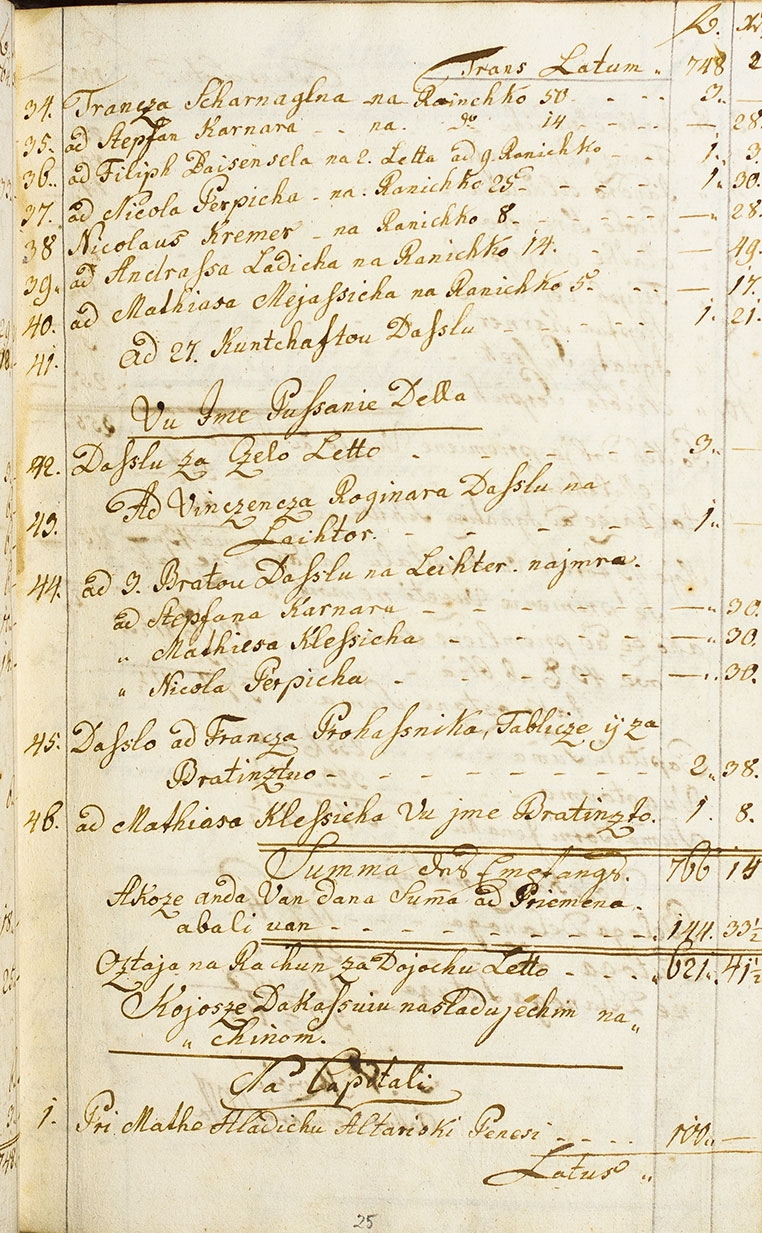 R. Xr
Trans Latum „ 748 2
34. Francza Scharnaglna na Rainchko 50. - - - 3„ —
35. ad Stepfan Karnara - - na. do 14 - - - —„ 28.
36. ad Filiph Daisensela na 2. Letta ad g. Ranichko - - 1„ 3.
37. ad Nicola Perpicha - na. Ranichko 25 - - - - 1„ 30.
38 Nicolaus Kremer - na Ranichko 8 - - - - - —„ 28.
39„ ad Andrassa Ladicha na Ranichko 14. - - - — 49.
40. ad Mathiasa Mejassicha na Ranichko 5. - - - — 17.
41. Ad 27. Kuntchaftou Dasslu - - - - - - 1. 21.
Vu Ime Pussanie Della
42. Dasslu za Czelo Letto - - - - - - 3„ —
43. Ad Vinczencza Roginara Dasslu na
Laihtor. - - - - - 1„ —
44. ad 3. Bratou Dasslu na Leihter. najmre.
ad Stepfana Karnaru - - - - - - —„ 30.
„ Mathiesa Klessicha - - - - - —„ 30.
„ Nicola Perpicha - - - - - —„ 30.
45. Dasslo ad Francza Prohassnika, Tablicze ÿ za
Bratinztuo - - - - - - - 2„ 38.
46. ad Mathiasa Klessicha Vu jme Bratinzto. 1. 8.
Summa des Emefangs. 766 14
Akoze anda Van dana Sum̄a ad Priemena
abali uan - - - - - - - „144. 33½
Oztaja na Rachun za Dojochu Letto - - - - „621„ 41½
Kojosze Dakassuiu nasladujechim na„
„ chinom.
Na Capitali
1. Pri Mathe Hladichu Altariski Penesi - - - - 100„ —
Latus „
25